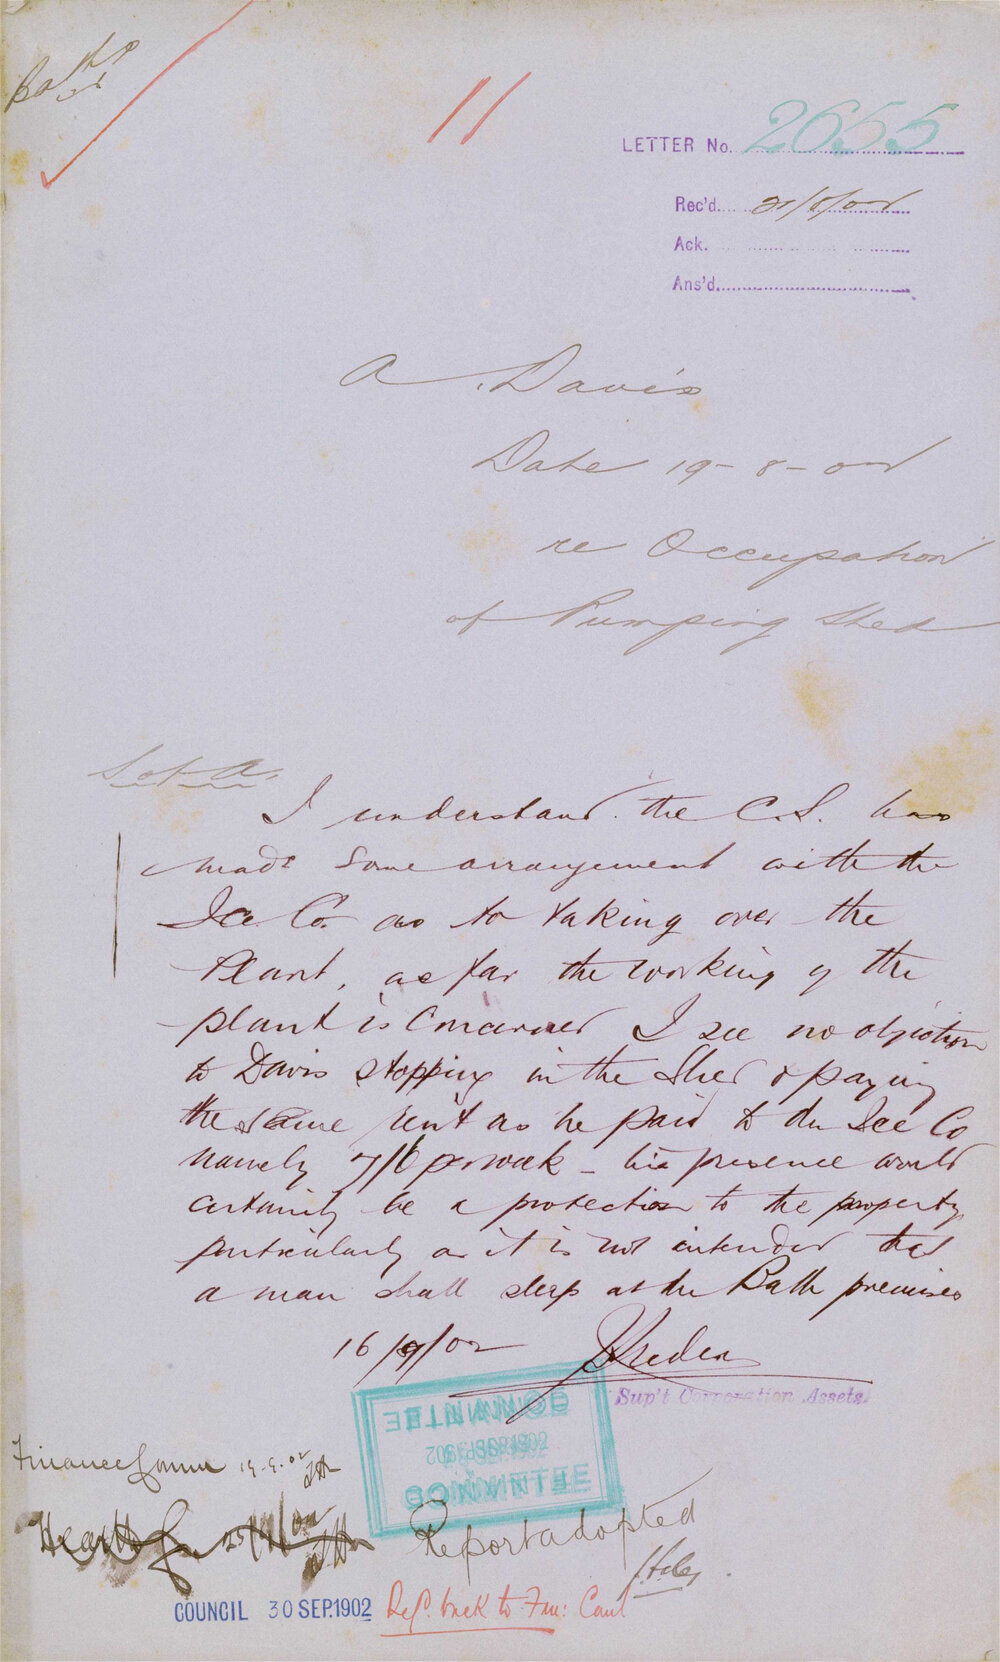 Baths
11
LETTER No. 2655
Rec'd. 21/8/02
Ack.
Ans'd.
A. Davis
Date 19-8-02
re Occupation
of Pumping Shed
I understand the C.S. has
made some arrangement with the
Ice Co. as to taking over the
Plant, as far the working of the
plant is concerned I see no objection
to Davis stopping in the Shed & paying
the same rent as he paid to the Ice Co
namely 7/6 per week - his presence would
certainly be a protection to the property
particularly as it is not intended that
a man shall sleep at the Bath premises
16/9/02
Sup't Corporation Assets
COMMITTEE
COMMITTEE
Finance Comm 19.9.02
Health
Report adopted
COUNCIL 30 SEP. 1902 Ref. back to Fin: Com